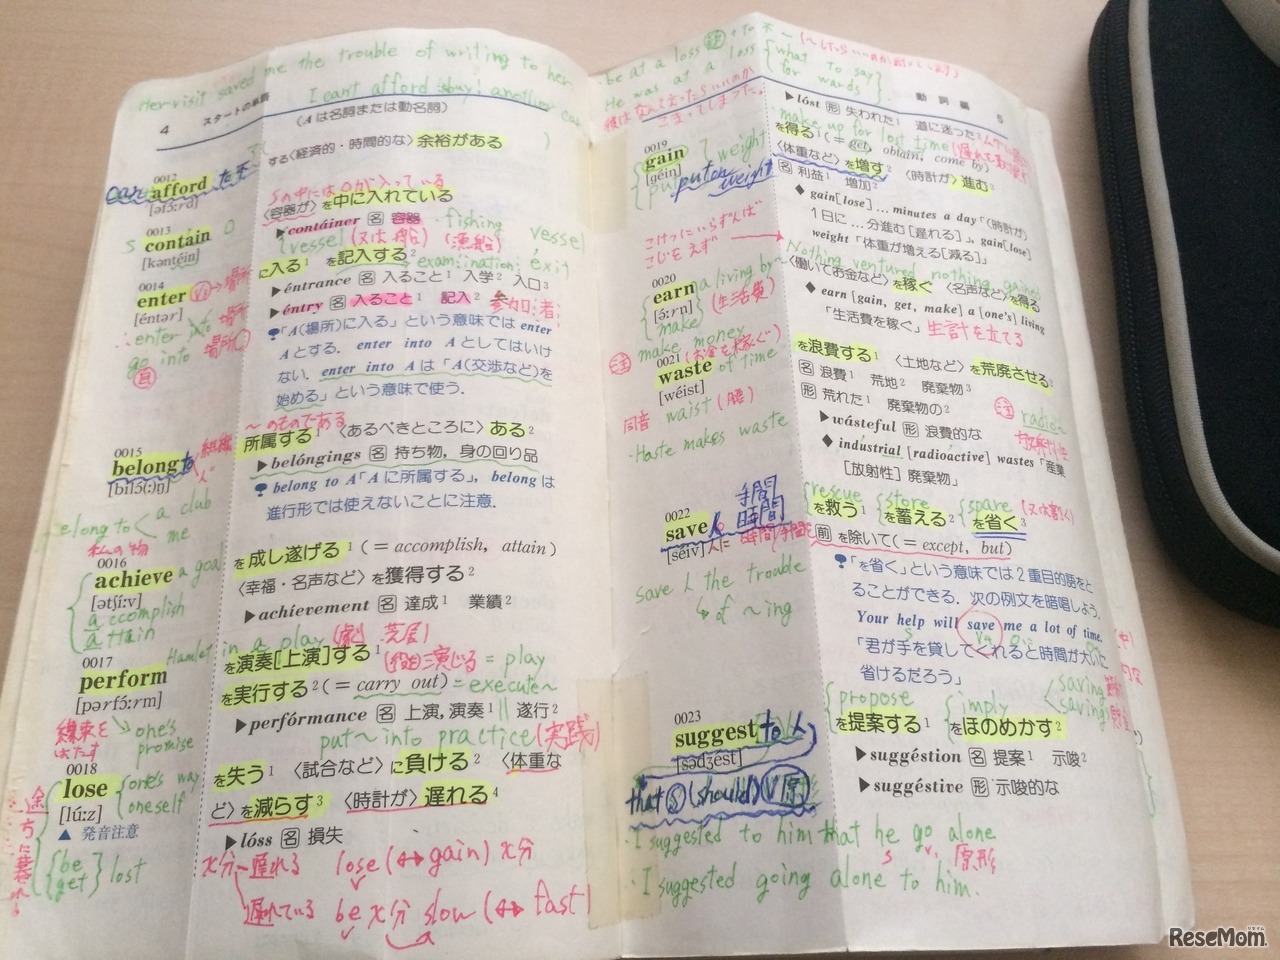 Her visit saved me the trouble of writing to her
I can't afford
4 スタートの単語
〈Aは名詞または動名詞〉
0012
afford
する〈経済的・時間的な〉余裕がある
Sの中にはOが入っている
0013
S contain O
[kəntéin]
〈容器が〉を中に入れている
▶contáiner 名 容器 ・fishing vessel
0014
enter
[éntər]
に入る¹ を記入する²
▶éntrance 名 入ること¹ 入学² 入口³
▶éntry 名 入ること¹ 記入²
「A(場所)に入る」という意味では enter
A とする. enter into A としてはいけ
ない. enter into A は「A(交渉など)を
始める」という意味で使う.
go into
〜のものである
0015
belong to
[bilɔ́(ː)ŋ]
所属する¹ 〈あるべきところに〉ある²
▶belóngings 名 持ち物, 身の回り品
belong to A「A に所属する」, belong は
進行形では使えないことに注意.
elong to a club
me
私の物
0016
achieve a goal
[ətʃíːv]
accomplish
attain
を成し遂げる¹ (= accomplish, attain)
〈幸福・名声など〉を獲得する²
▶achievement 名 達成¹ 業績²
Hamlet in a play (劇 芝居)
0017
perform
[pərfɔ́ːrm]
を演奏[上演]する¹ = play
を実行する² (= carry out) = execute
▶perfórmance 名 上演, 演奏¹ 遂行²
put 〜 into practice (実践)
約束を
はたす
one's
promise
0018
lose
[lúːz]
▲ 発音注意
one's way
oneself
be
get
lost
を失う¹ 〈試合など〉に負ける² 〈体重な
ど〉を減らす³ 〈時計が〉遅れる⁴
▶lóss 名 損失
x分遅れる lose (↔ gain) x分
遅れている be x分 slow (↔ fast)
be at a loss
what to say
for words
He was at a loss
動詞編 5
▶lóst 形 失われた¹ 道に迷った²
make up for lost time
0019
gain
[géin]
weight
put on weight
を得る¹ (= get, obtain, come by)
〈体重など〉を増す² 〈時計が〉進む³
名 利益¹ 増加²
◆ gain[lose] ... minutes a day「(時計が)
1日に…分進む[遅れる]」, gain[lose]
weight「体重が増える[減る]」
こけつにいらずんば
こじをえず
Nothing ventured nothing gained
0020
earn
[ə́ːrn]
make
a living by
(生活費)
make money
(お金を稼ぐ)
〈働いてお金など〉を稼ぐ¹ 〈名声など〉を得る²
◆ earn [gain, get, make] a [one's] living
「生活費を稼ぐ」 生計を立てる
0021
waste of time
[wéist]
同音 waist (腰)
・Haste makes waste
を浪費する¹ 〈土地など〉を荒廃させる²
名 浪費¹ 荒地² 廃棄物³
形 荒れた¹ 廃棄物の²
▶wásteful 形 浪費的な
◆ indústrial [radioactive] wastes「産業
[放射性]廃棄物」
0022
save 人 手間
時間
[séiv]
save 人 the trouble
of 〜ing
rescue store spare
を救う¹ を蓄える² を省く³
前 を除いて(= except, but)
「を省く」という意味では2重目的語をと
ることができる. 次の例文を暗唱しよう.
Your help will save me a lot of time.
「君が手を貸してくれると時間が大いに
省けるだろう」
saving
savings
0023
suggest to 人
[səgdʒést]
that S (should) V原
propose imply
を提案する¹ をほのめかす²
▶suggéstion 名 提案¹ 示唆²
▶suggéstive 形 示唆的な
・I suggested to him that he go alone
S V 原形
・I suggested going alone to him.
ReseMom